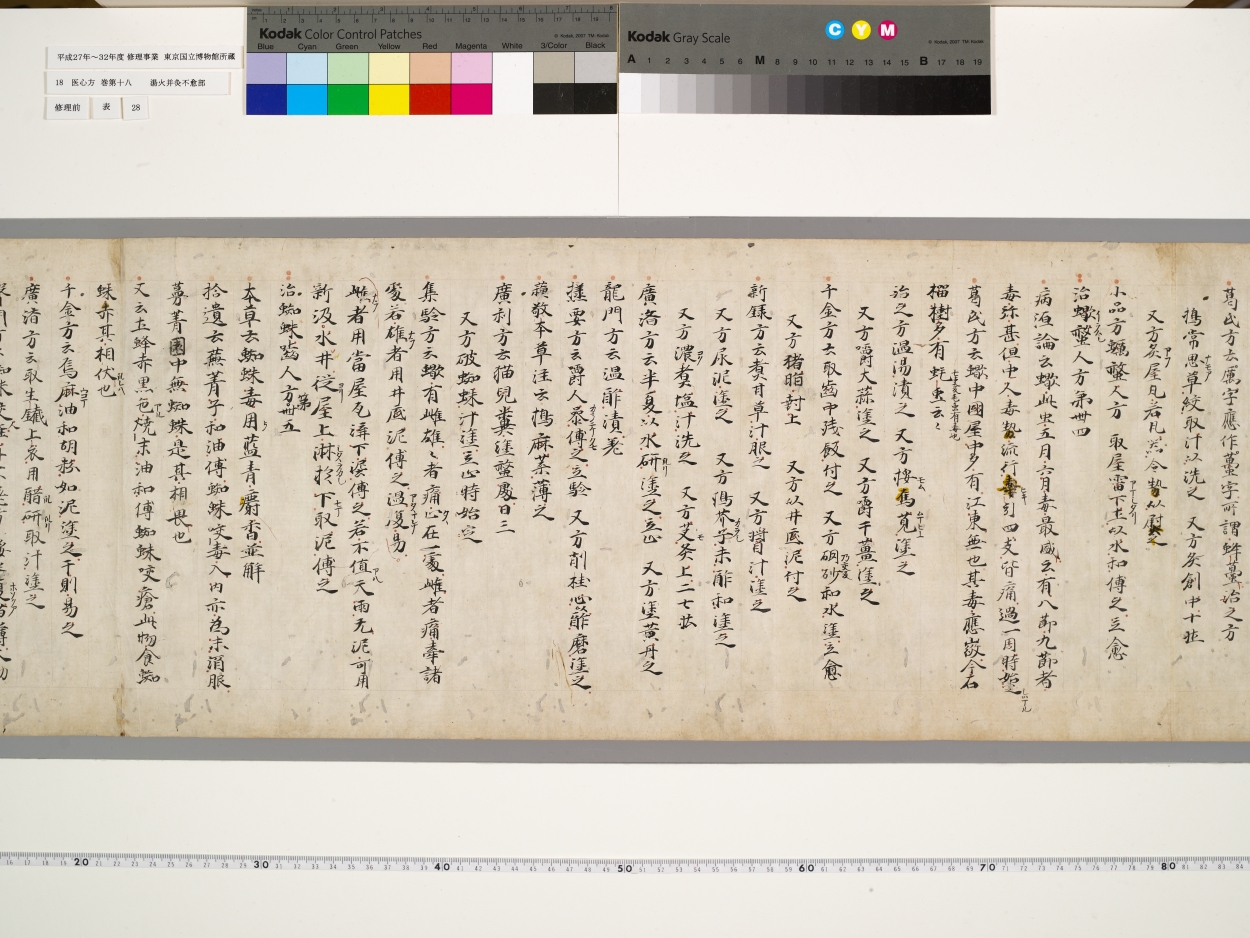 平成27年～32年度 修理事業 東京国立博物館所蔵
18 医心方 巻第十八 湯火并灸不愈部
修理前 表 28
Kodak Color Control Patches
© Kodak, 2007 TM: Kodak
Blue Cyan Green Yellow Red Magenta White 3/Color Black
Kodak Gray Scale
C Y M
© Kodak, 2007 TM: Kodak
A 1 2 3 4 5 6 M 8 9 10 11 12 13 14 15 B 17 18 19
葛氏方云厲字應作蠆字可謂蜂蠆治之方
搗常思草絞取汁以洗之 又方灸創中十壮
又方炙屋瓦若瓦然令熱以尉之
小品方蠍螫人方 取屋霤下土以水和傅之立愈
治蠍螫人方第卅四
病源論云蠍此虫五月六月毒最盛云有八節九節者
毒弥甚但中人毒熱流行牽引四支皆痛過一周時始
葛氏方云蠍中國屋中多有江東無也其毒應微今石
榴樹多有蚝虫云々
治之方温湯漬之 又方接馬莧塗之
又方嚼大蒜塗之 又方嚼干薑塗之
千金方云取齒中残飯付之 又方硇砂和水塗立愈
又方猪脂封上 又方以井底泥付之
新録方云煑甘草汁服之 又方醤汁塗之
又方尿泥塗之 又方搗芥子末酢和塗之
又方濃煑塩汁洗之 又方艾灸上二七壮
廣濟方云半夏以水研塗之立止 又方塗黄丹之
龍門方云温酢漬差
撻要方云嚼人暴傅之立驗 又方削桂心酢磨塗之
蘓敬本草注云搗麻葉薄之
廣利方云猫兒糞塗螫處日三
又方破蜘蛛汁塗立止特始定
集驗方云蠍有雌雄々者痛止在一處雌者痛牽諸
處若雄者用井底泥傅之温復易
雌者用當屋瓦溝下泥傅之若不值天雨无泥可用
新汲水井従屋上淋於下取泥傅之
治蜘蛛齧人方第卅五
本草云蜘蛛毒用藍青麝香並解
拾遺云蕪菁子和油傅蜘蛛咬毒入内亦為末酒服
蔓菁園中無蜘蛛是其相畏也
又云土蜂赤黒色燒末油和傅蜘蛛咬瘡此物食蜘
蛛亦其相伏也
千金方云烏麻油和胡粉如泥塗之干則易之
廣濟方云取生鐵上衣用醋研取汁塗之
20 30 40 50 60 70 80